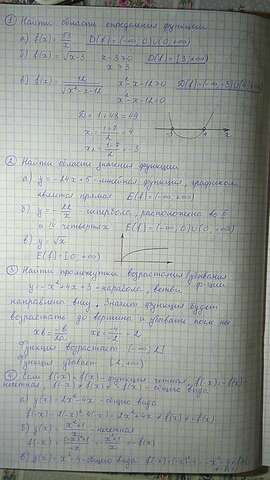 ① Найти области определения функции
а) f(x) = 37/x D(f) = (-∞; 0)∪(0; +∞)
б) f(x) = √x-3 x-3≥0 D(f) = [3; +∞)
x≥3
в) f(x) = 12/√x²-x-12 x²-x-12>0
x²-x-12=0
D = 1+48 = 49
x = 1+7/2 = 4
x₂ = 1-7/2 = -3
② Найти области значения функции
а) y = -24x+5 - линейная функция, графиком
является прямая E(f) = (-∞; +∞)
б) гипербола, расположена во II
и IV четвертях E(f) = (-∞; 0)∪(0; +∞)
в) y = √x
E(f) = [0; +∞)
③ Найти промежутки возрастания/убывания ф-ции
y = -x²+4x+3 - парабола, ветви
направлены вниз. Значит функция будет
возрастать до вершины и убывать после неё
xв = -b/2a xв = -4/-2 = 2
Функция возрастает (-∞; 2]
Функция убывает [2; +∞)
④ Если f(-x) = f(x) - функция четная, f(-x) = -f(x) -
нечетная, общего вида
а) y(x) = 2x²-4x - общего вида
б) y(x) = - нечетная
в) общего вида